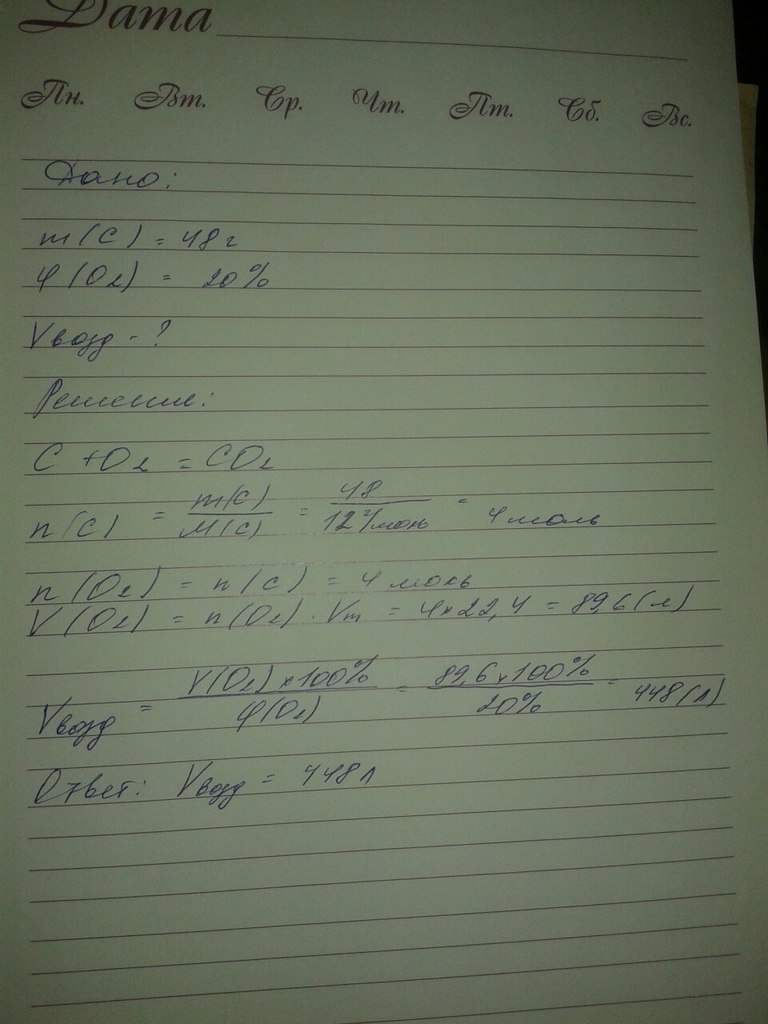 Дата
Пн. Вт. Ср. Чт. Пт. Сб. Вс.
Дано:
m(C) = 48 г
φ(O2) = 20%
Vвозд - ?
Решение:
C + O2 = CO2
n(C) = m(C) / M(C) = 48 / 12 г/моль = 4 моль
n(O2) = n(C) = 4 моль
V(O2) = n(O2) · Vm = 4 × 22,4 = 89,6 (л)
Vвозд = V(O2) × 100% / φ(O2) = 89,6 × 100% / 20% = 448 (л)
Ответ: Vвозд = 448 л